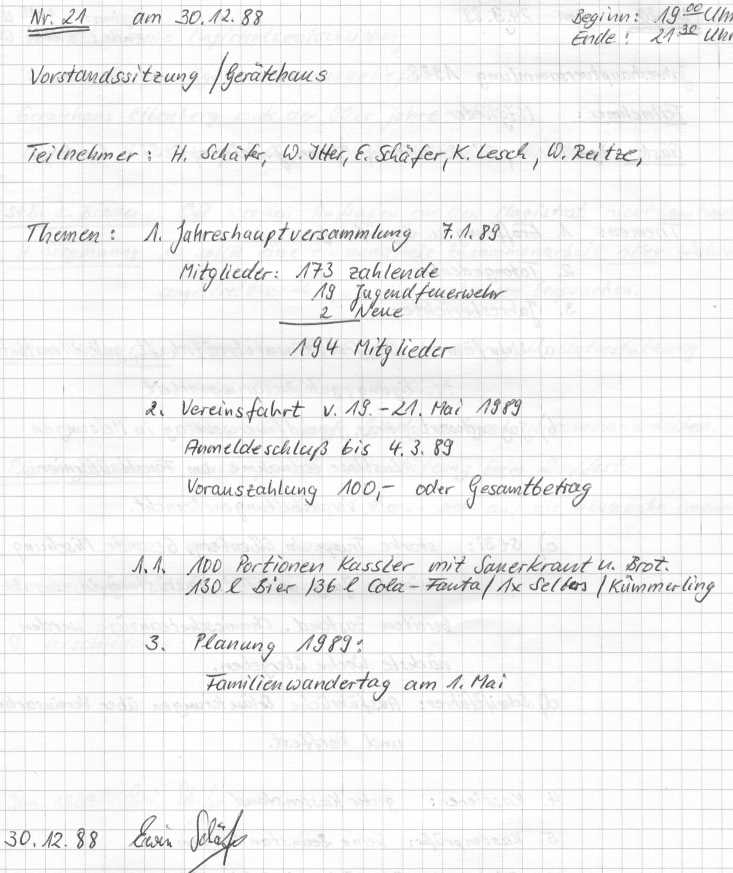 Nr. 21 am 30.12.88 Beginn: 19⁰⁰ Uhr
Ende: 21³⁰ Uhr
Vorstandssitzung / Gerätehaus
Teilnehmer: H. Schäfer, W. Itter, E. Schäfer, K. Lesch, W. Reitze,
Themen: 1. Jahreshauptversammlung 7.1.89
Mitglieder: 173 zahlende
19 Jugendfeuerwehr
2 Neue
194 Mitglieder
2. Vereinsfahrt v. 19.-21. Mai 1989
Anmeldeschluß bis 4.3.89
Vorauszahlung 100,- oder Gesamtbetrag
1.1. 100 Portionen Kassler mit Sauerkraut u. Brot.
130 l Bier / 36 l Cola-Fanta / 1x Selters / Kümmerling
3. Planung 1989:
Familienwandertag am 1. Mai
30.12.88 Erwin Schäfer